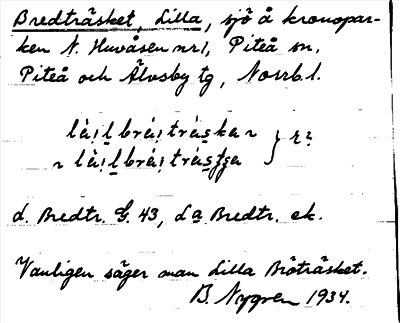 Bredträsket, Lilla, sjö å kronopar-
ken N. Huvåsen nr 1, Piteå sn,
Piteå och Älvsby tg, Norrb. l.
d. Bredtr. G. 43, L:a Bredtr. ek.
Vanligen säger man Lilla Bröträsket.
B. Nygren 1934.